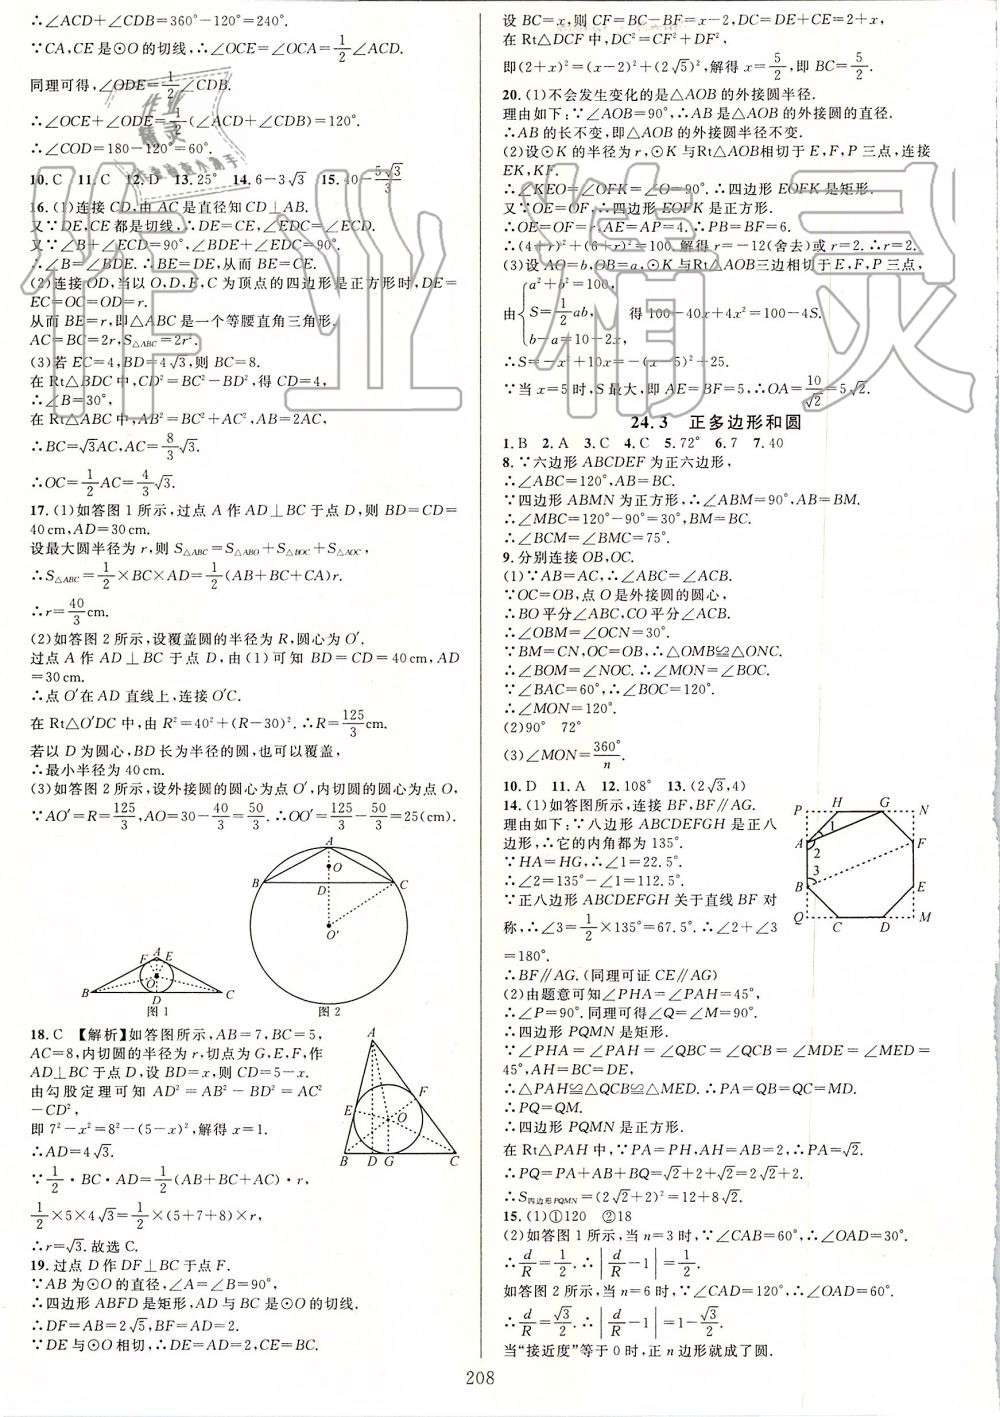 ∴∠ACD+∠CDB=360°-120°=240°.
∵CA,CE是⊙O的切线,∴∠OCE=∠OCA=1/2∠ACD.
同理可得,∠ODE=1/2∠CDB.
∴∠OCE+∠ODE=1/2(∠ACD+∠CDB)=120°.
∴∠COD=180-120°=60°.
10.C 11.C 12.D 13.25° 14.6-3√3 15.40-5√3/3
16.(1)连接CD,由AC是直径知CD⊥AB.
又∵DE,CE都是切线,∴DE=CE,∠EDC=∠ECD.
又∵∠B+∠ECD=90°,∠BDE+∠EDC=90°.
∴∠B=∠BDE.∴BE=DE,从而BE=CE.
(2)连接OD,当以O,D,E,C为顶点的四边形是正方形时,DE=
EC=OC=OD=r.
从而BE=r,即△ABC是一个等腰直角三角形.
AC=BC=2r,S△ABC=2r².
(3)若EC=4,BD=4√3,则BC=8.
在Rt△BDC中,CD²=BC²-BD²,得CD=4,
∴∠B=30°,
在Rt△ABC中,AB²=BC²+AC²,AB=2AC,
∴BC=√3AC,AC=8/3√3.
∴OC=1/2AC=4/3√3.
17.(1)如答图1所示,过点A作AD⊥BC于点D,则BD=CD=
40cm,AD=30cm.
设最大圆半径为r,则S△ABC=S△ABO+S△BOC+S△AOC,
∴S△ABC=1/2×BC×AD=1/2(AB+BC+CA)r.
∴r=40/3cm.
(2)如答图2所示,设覆盖圆的半径为R,圆心为O′.
过点A作AD⊥BC于点D,由(1)可知BD=CD=40cm,AD
=30cm.
∴点O′在AD直线上,连接O′C.
在Rt△O′DC中,由R²=40²+(R-30)².∴R=125/3cm.
若以D为圆心,BD长为半径的圆,也可以覆盖,
∴最小半径为40cm.
(3)如答图2所示,设外接圆的圆心为点O′,内切圆的圆心为点O,
∵AO′=R=125/3,AO=30-40/3=50/3.∴OO′=125/3-50/3=25(cm).
A
B D C
O
O′
F A E
O
B D C
图1 图2
18.C 【解析】如答图所示,AB=7,BC=5,
AC=8,内切圆的半径为r,切点为G,E,F,作
AD⊥BC于点D,设BD=x,则CD=5-x.
由勾股定理可知AD²=AB²-BD²=AC²
-CD²,
即7²-x²=8²-(5-x)²,解得x=1.
∴AD=4√3.
∵1/2·BC·AD=1/2(AB+BC+AC)·r,
1/2×5×4√3=1/2×(5+7+8)×r,
∴r=√3.故选C.
A
F
E O
B D G C
19.过点D作DF⊥BC于点F.
∵AB为⊙O的直径,∠A=∠B=90°,
∴四边形ABFD是矩形,AD与BC是⊙O的切线.
∴DF=AB=2√5,BF=AD=2.
∵DE与⊙O相切,∴DE=AD=2.
设BC=x,则CF=BC-BF=x-2,DC=DE+CE=2+x,
在Rt△DCF中,DC²=CF²+DF²,
即(2+x)²=(x-2)²+(2√5)²,解得x=5/2,即BC=5/2.
20.(1)不会发生变化的是△AOB的外接圆半径.
理由如下:∵∠AOB=90°,∴AB是△AOB的外接圆的直径.
∴AB的长不变,即△AOB的外接圆半径不变.
(2)设⊙K的半径为r,⊙K与Rt△AOB相切于E,F,P三点,连接
EK,KF.
∴∠KEO=∠OFK=∠O=90°.∴四边形EOFK是矩形.
又∵OE=OF,∴四边形EOFK是正方形.
∴OE=OF=r,AE=AP=4.∴PB=BF=6.
∴(4+r)²+(6+r)²=100.解得r=-12(舍去)或r=2.∴r=2.
(3)设AO=b,OB=a,⊙K与Rt△AOB三边相切于E,F,P三点,
由{a²+b²=100, S=1/2ab, b-a=10-2x, 得100-40x+4x²=100-4S.
∴S=-x²+10x=-(x-5)²+25.
∵当x=5时,S最大,即AE=BF=5,∴OA=10/√2=5√2.
24.3 正多边形和圆
1.B 2.A 3.C 4.C 5.72° 6.7 7.40
8.∵六边形ABCDEF为正六边形,
∴∠ABC=120°,AB=BC.
∵四边形ABMN为正方形,∴∠ABM=90°,AB=BM.
∴∠MBC=120°-90°=30°,BM=BC.
∴∠BCM=∠BMC=75°.
9.分别连接OB,OC.
(1)∵AB=AC,∴∠ABC=∠ACB.
∵OC=OB,点O是外接圆的圆心,
∴BO平分∠ABC,CO平分∠ACB.
∴∠OBM=∠OCN=30°.
∵BM=CN,OC=OB,∴△OMB≌△ONC.
∴∠BOM=∠NOC.∴∠MON=∠BOC.
∵∠BAC=60°,∴∠BOC=120°.
∴∠MON=120°.
(2)90° 72°
(3)∠MON=360°/n.
10.D 11.A 12.108° 13.(2√3,4)
14.(1)如答图所示,连接BF,BF∥AG.
理由如下:∵八边形ABCDEFGH是正八
边形,∴它的内角都为135°.
∵HA=HG,∴∠1=22.5°.
∴∠2=135°-∠1=112.5°.
∵正八边形ABCDEFGH关于直线BF对
称,∴∠3=1/2×135°=67.5°.∴∠2+∠3
=180°.
∴BF∥AG.(同理可证CE∥AG)
P H G N
A 1 2 F
B 3 E
Q C D M
(2)由题意可知∠PHA=∠PAH=45°,
∴∠P=90°.同理可得∠Q=∠M=90°.
∴四边形PQMN是矩形.
∵∠PHA=∠PAH=∠QBC=∠QCB=∠MDE=∠MED=
45°,AH=BC=DE,
∴△PAH≌△QCB≌△MED.∴PA=QB=QC=MD.
∴PQ=QM.
∴四边形PQMN是正方形.
在Rt△PAH中,∵PA=PH,AH=AB=2,∴PA=√2.
∴PQ=PA+AB+BQ=√2+2+√2=2√2+2.
∴S四边形PQMN=(2√2+2)²=12+8√2.
15.(1)①120 ②18
(2)如答图1所示,当n=3时,∵∠CAB=60°,∴∠OAD=30°.
∴d/R=1/2.∴|d/R-1|=1/2.
如答图2所示,当n=6时,∵∠CAD=120°,∴∠OAD=60°.
∴d/R=√3/2.∴|d/R-1|=1-√3/2.
当“接近度”等于0时,正n边形就成了圆.
208
作业精灵